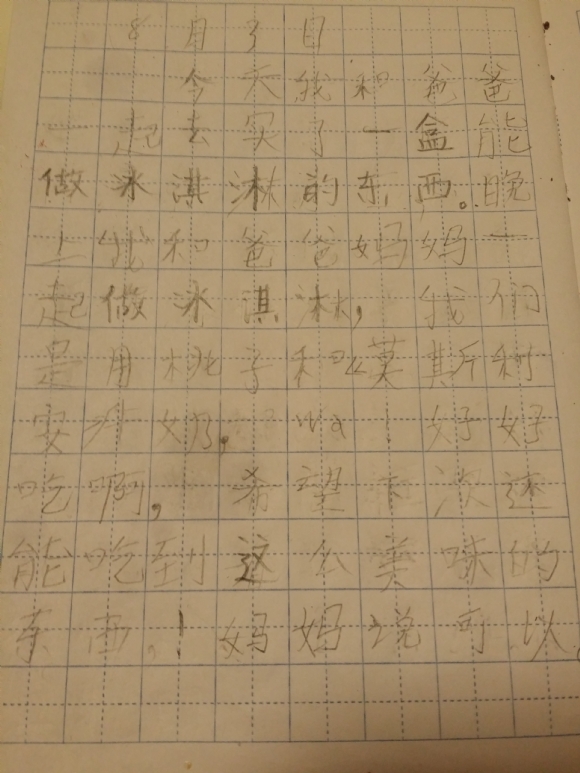 8月3日
今天我和爸爸
一起去买了一盒能
做冰淇淋的东西。晚
上我和爸爸妈妈一
起做冰淇淋,我们
是用桃子和“莫斯利
安酸奶,wa!好好
吃啊,希望下次还
能吃到这么美味的
东西!妈妈说可以。